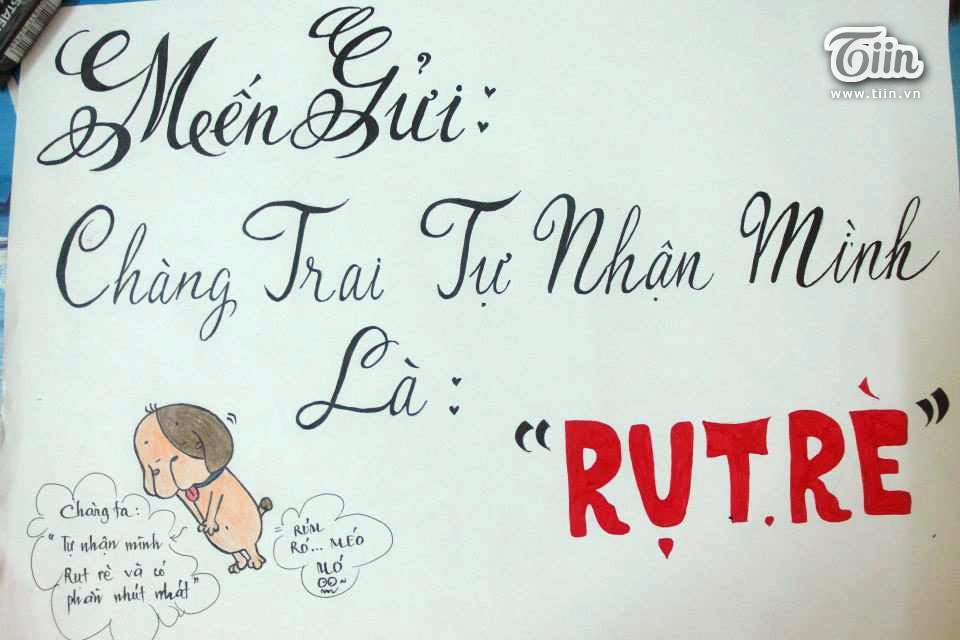 Mến Gửi:
Chàng Trai Tự Nhận Mình
Là:
"RỤT.RÈ"
Chàng ta:
"Tự nhận mình
Rụt rè và có
phần nhút nhát"
RÚM
RÓ... MÉO
MÓ
Tiin
www.tiin.vn
STAE